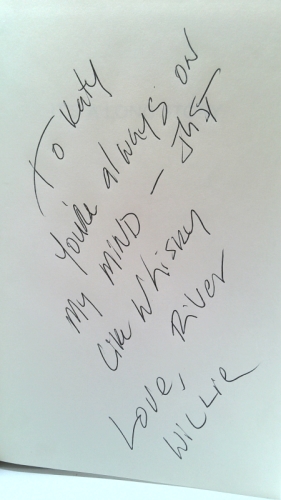 To Katy
You're always on
my mind - Just
like Whiskey
River
Love,
Willie